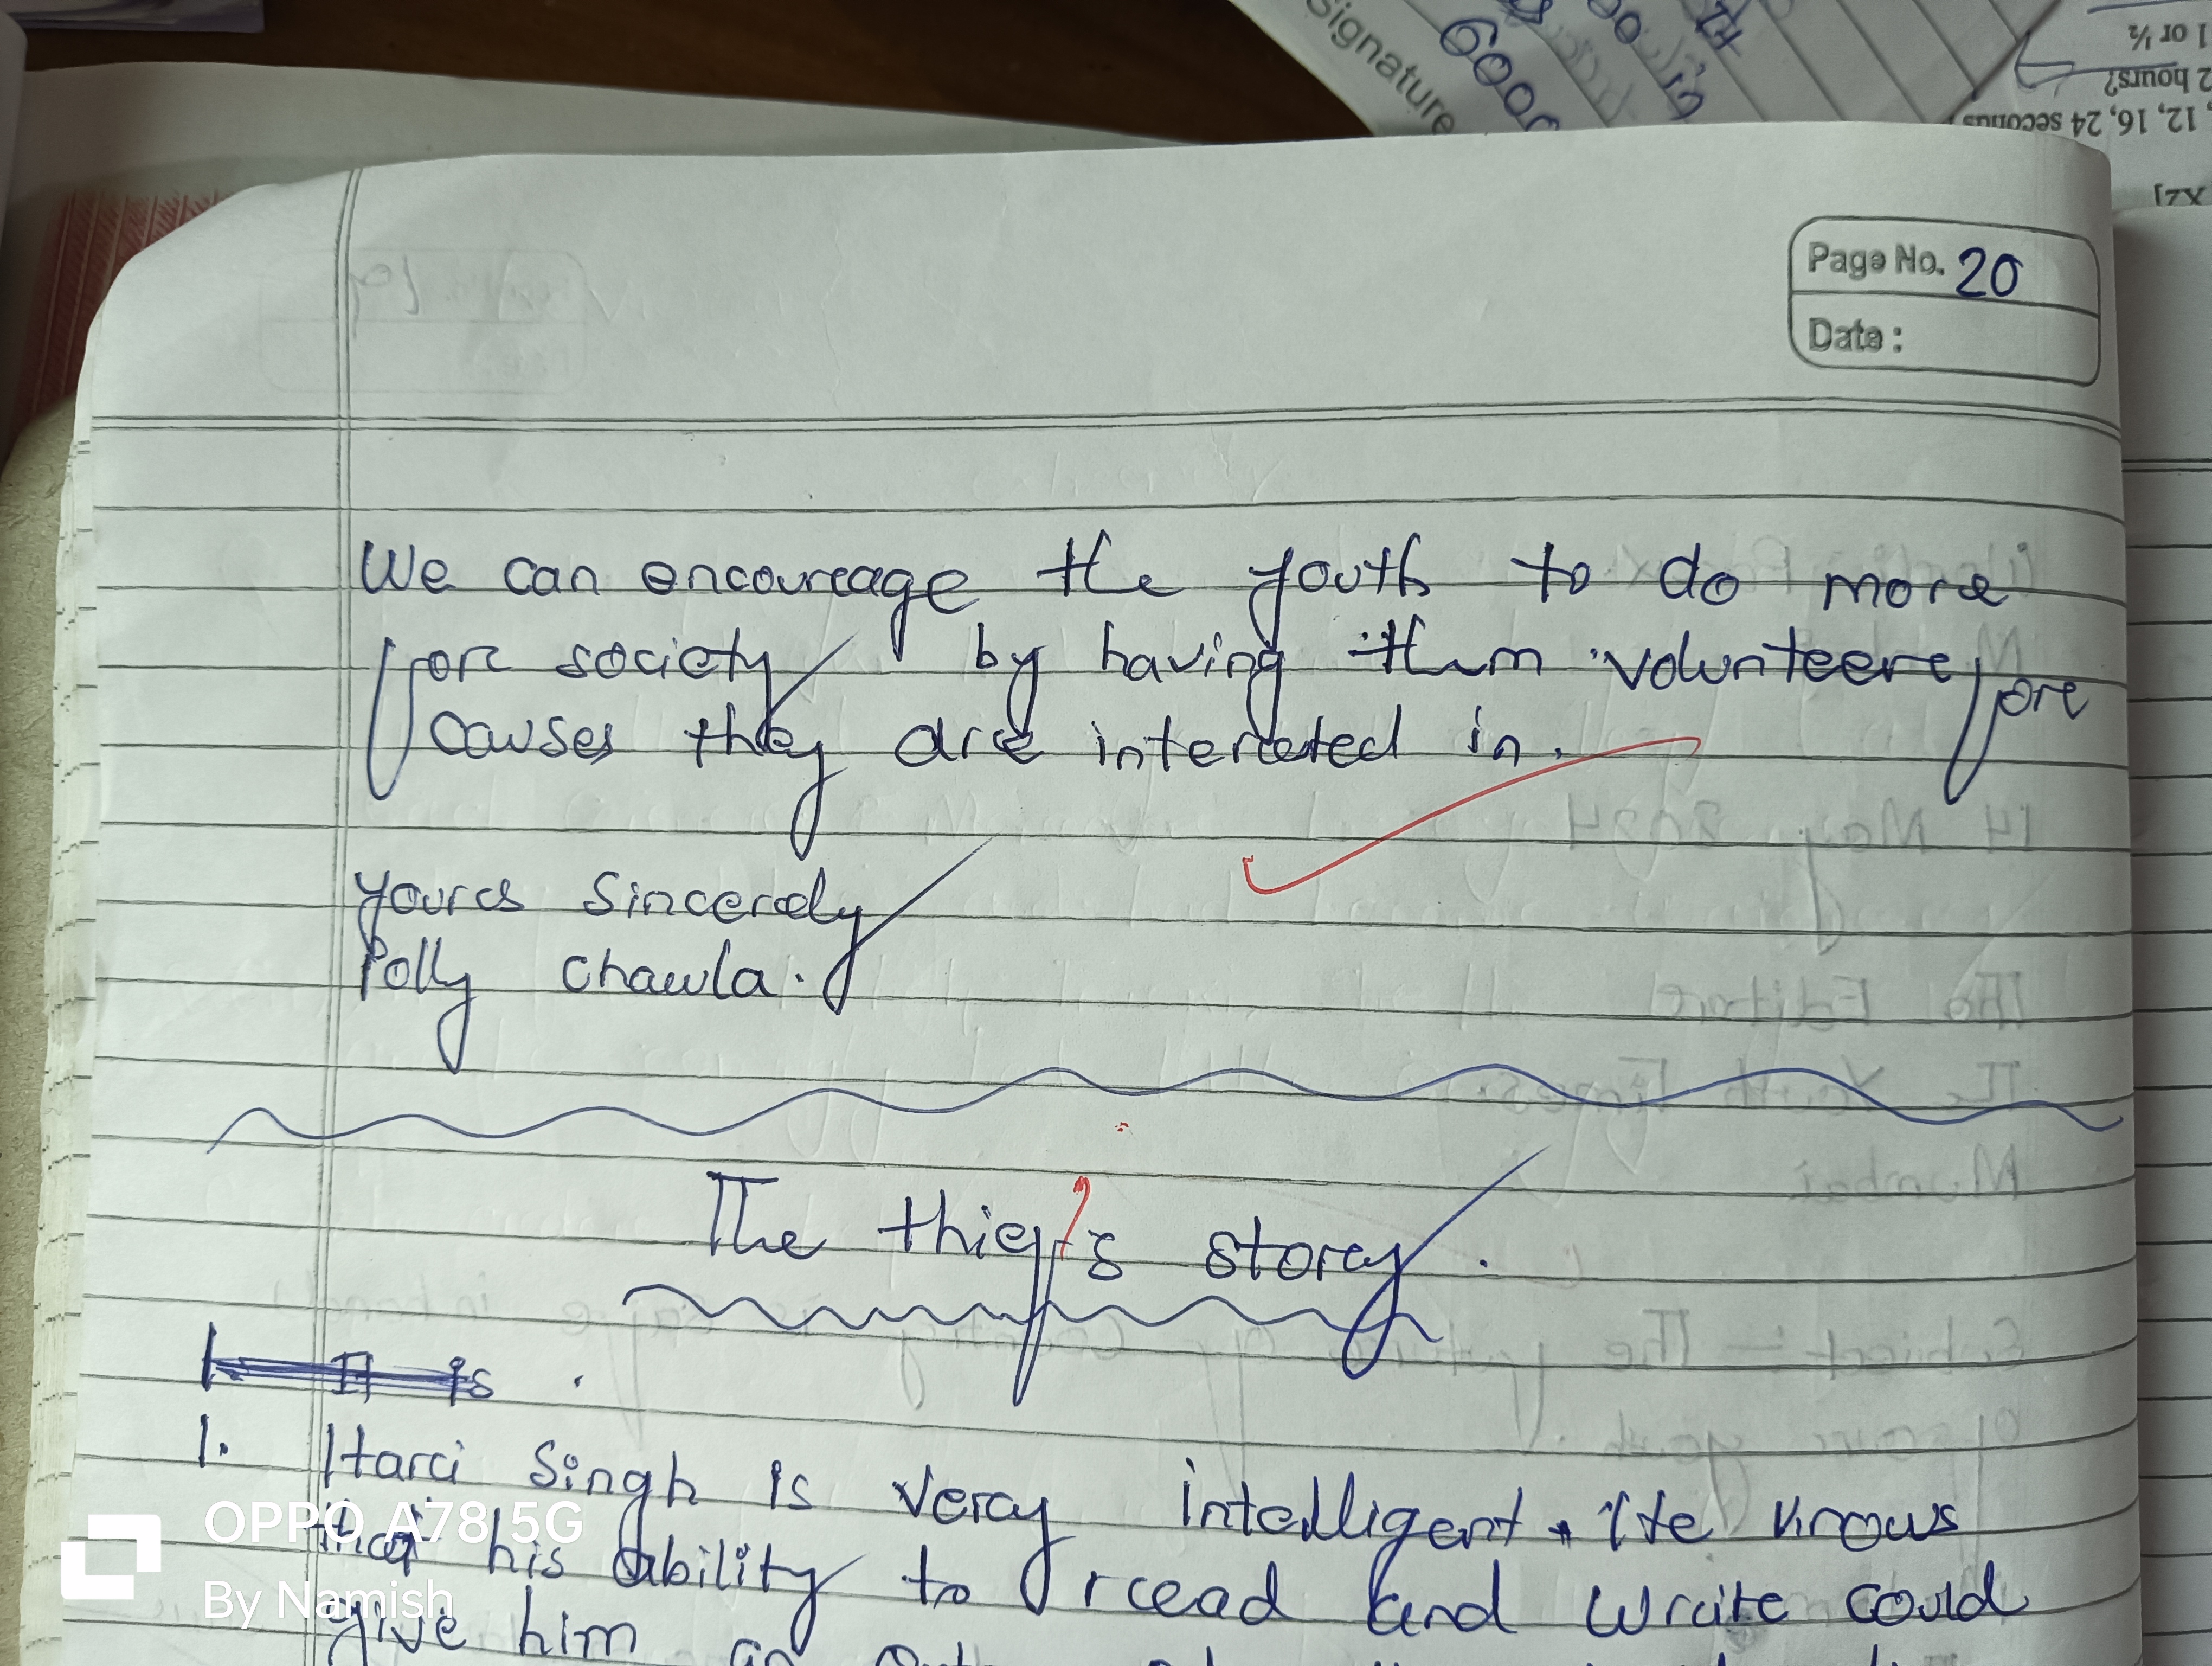 Signature
6000
1 or ½
2 hours?
12, 16, 24 seconds
x2]
Page No. 20
Date :
We can encourage the youth to do more
for society by having them volunteer for
causes they are interested in.
Yours Sincerely
Polly Chawla.
The thief's story.
1 It is .
1. Hari Singh is very intelligent. He knows
that his ability to read and write could
give him an
OPPO A78 5G
By Namish